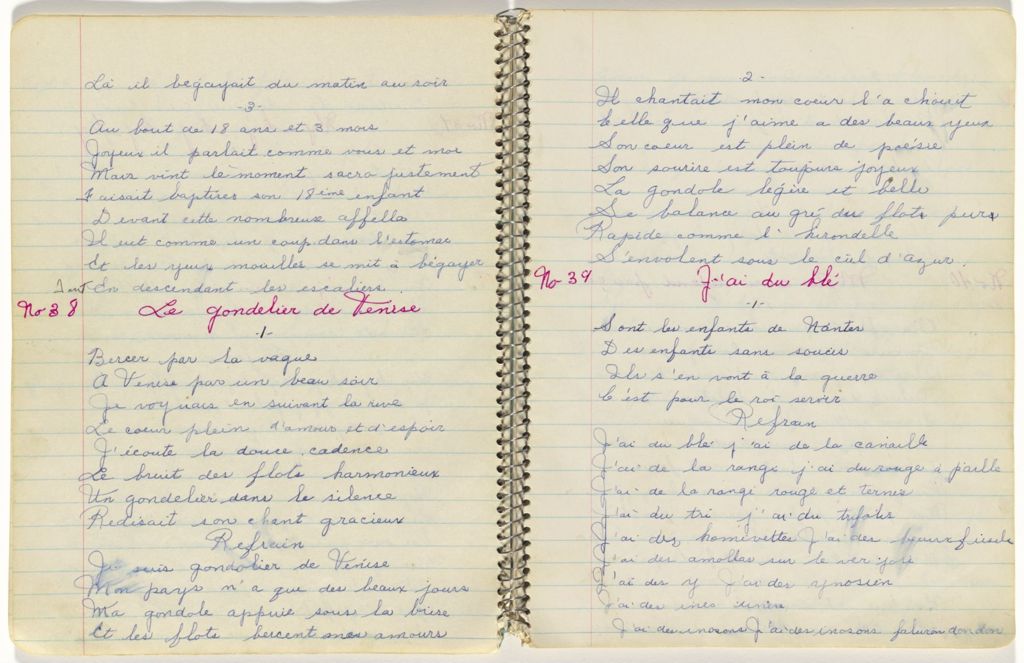 Là il begayait du matin au soir
-3-
Au bout de 18 ans et 3 mois
Joyeux il parlait comme vous et moi
Mais vint le moment sacro justement
Faisait baptises son 18ième enfant
Devant cette nombreuse affella
Il eut comme un coup dans l'estomac
Et les yeux mouillés se mit à bégayer
En descendant les escaliers.
No 38 Le gondelier de Venise
-1-
Bercer par la vague
A Venise par un beau soir
Je voyais en suivant la rive
Le coeur plein d'amour et d'espoir
J'écoute la douce cadence
Le bruit des flots harmonieux
Un gondelier dans le silence
Redisait son chant gracieux
Refrain
Je suis gondolier de Venise
Mon pays n'a que des beaux jours
Ma gondole appuie sous la brise
Et les flots bercent mes amours
-2-
Il chantait mon coeur l'a choisit
Celle que j'aime a des beaux yeux
Son coeur est plein de poésie
Son sourire est toujours joyeux
La gondole légère et belle
Se balance au gré des flots purs
Rapide comme l'hirondelle
S'envolent sous le ciel d'azur.
No 39 J'ai du blé
-1-
Sont les enfants de Nantes
Des enfants sans soucis
Ils s'en vont à la guerre
C'est pour le roi servir
Refrain
J'ai du blé j'ai de la canaille
J'ai de la rangi j'ai du rouge à paille
J'ai de la rangi rouge et ternes
J'ai du tri j'ai du
J'ai des homivettes J'ai des
J'ai des amollas sur le
J'ai des y J'ai des ynosien
J'ai des
J'ai des inosons J'ai des inosons faluron dondon